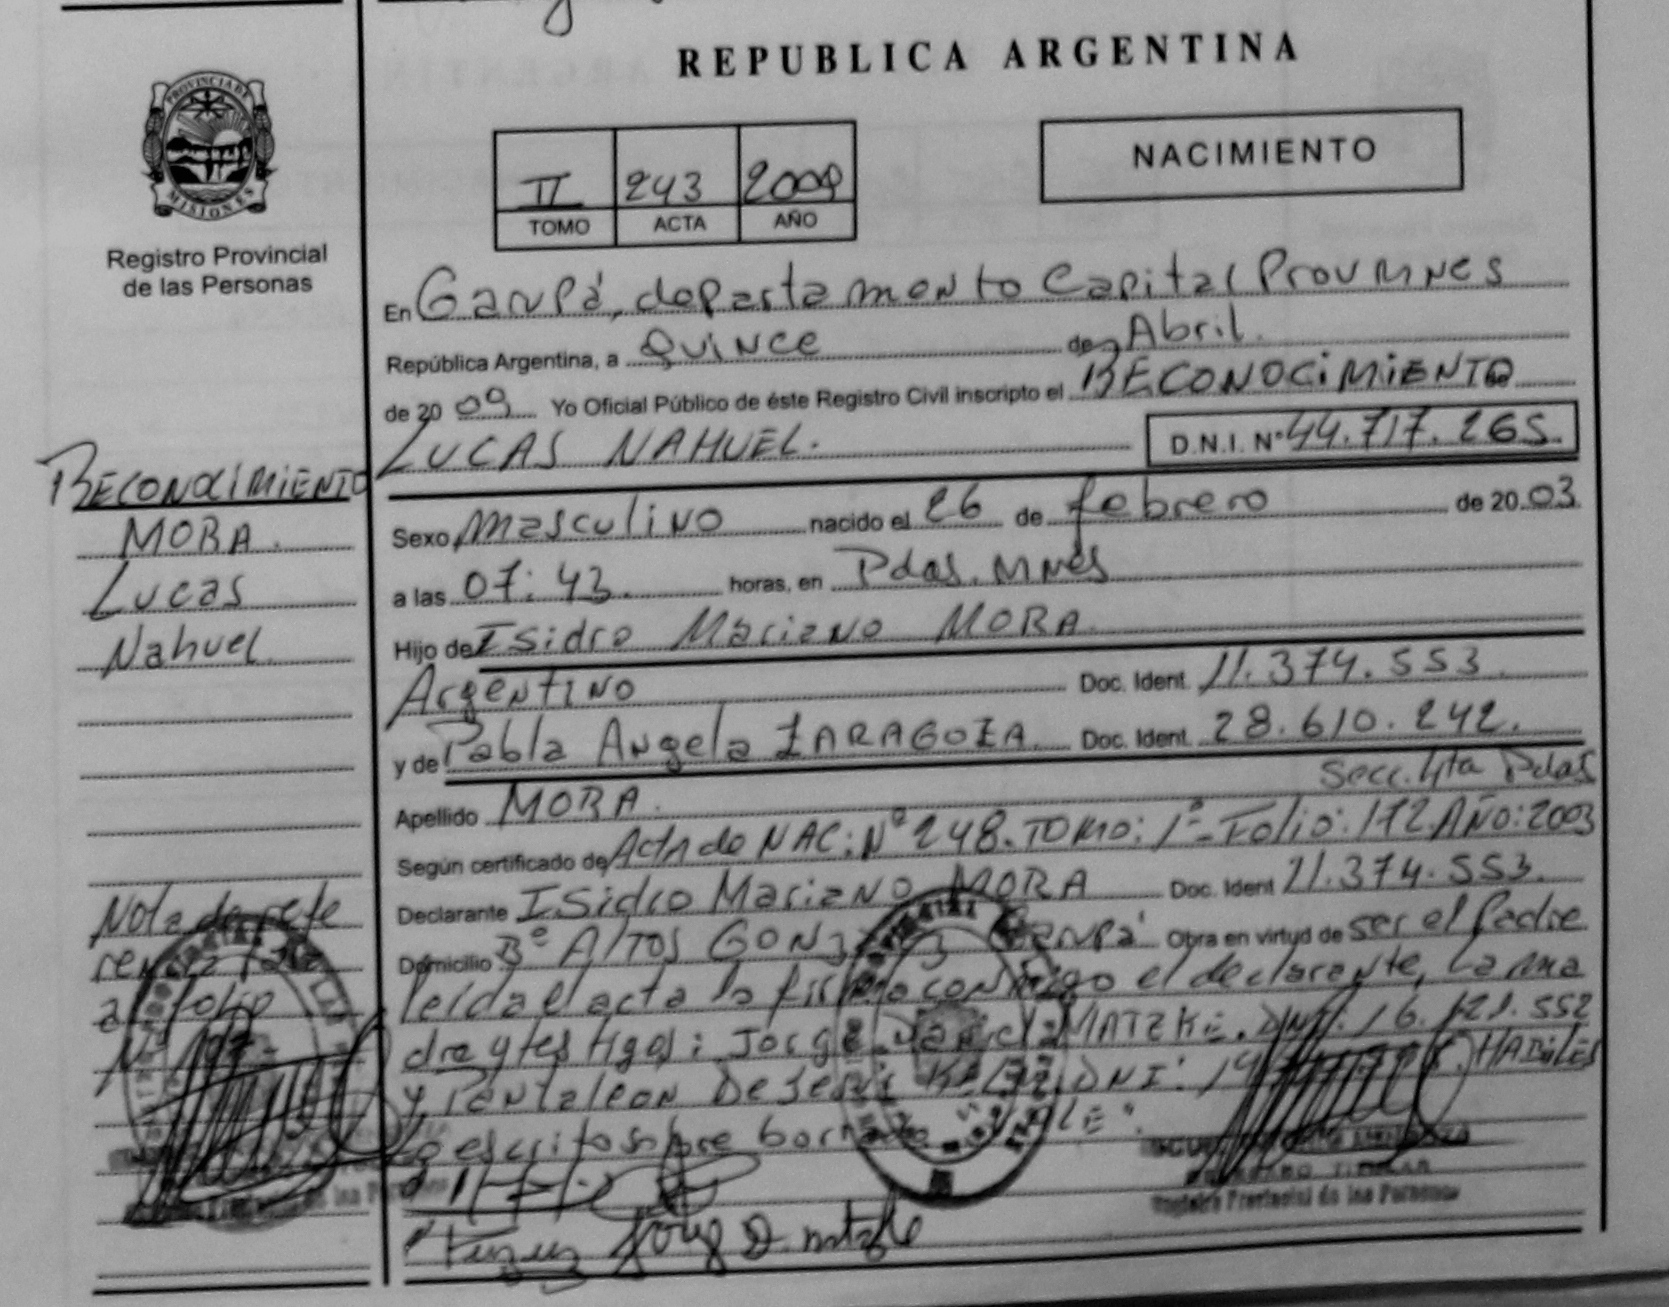 REPUBLICA ARGENTINA
PROVINCIA DE
MISIONES
Registro Provincial
de las Personas
II 243 2009
TOMO ACTA AÑO
NACIMIENTO
En Garupá, departamento Capital Prov Mnes
República Argentina, a Quince de Abril.
de 20 09 Yo Oficial Público de éste Registro Civil inscripto el RECONOCIMIENTO de
LUCAS NAHUEL.
D.N.I. Nº 44.717.265.
RECONOCIMIENTO
MORA.
Lucas
Nahuel.
Sexo Masculino nacido el 26 de febrero de 20 03
a las 07:43. horas, en Pdas. Mnes
Hijo de Isidro Mariano MORA.
Argentino Doc. Ident. 11.374.553
y de Pabla Angela ZARAGOZA. Doc. Ident. 28.610.242.
Secc. 4ta Pdas
Apellido MORA.
Según certificado de Acta de NAC: Nº 248. TOMO: 1º- Folio: 172 AÑO: 2003
Declarante Isidro Mariano MORA Doc. Ident 11.374.553.
Domicilio Bº Altos Garupá Obra en virtud de ser el Padre
leída el acta la conmigo el declarante, la ma
dre y testigos: Jorge MATZKE. DNI. 16.121.552
y Pantaleon DNI: HABILES
lo escrito sobre borrado
Nota de refe
a folio
Nº
Registro Provincial de las Personas